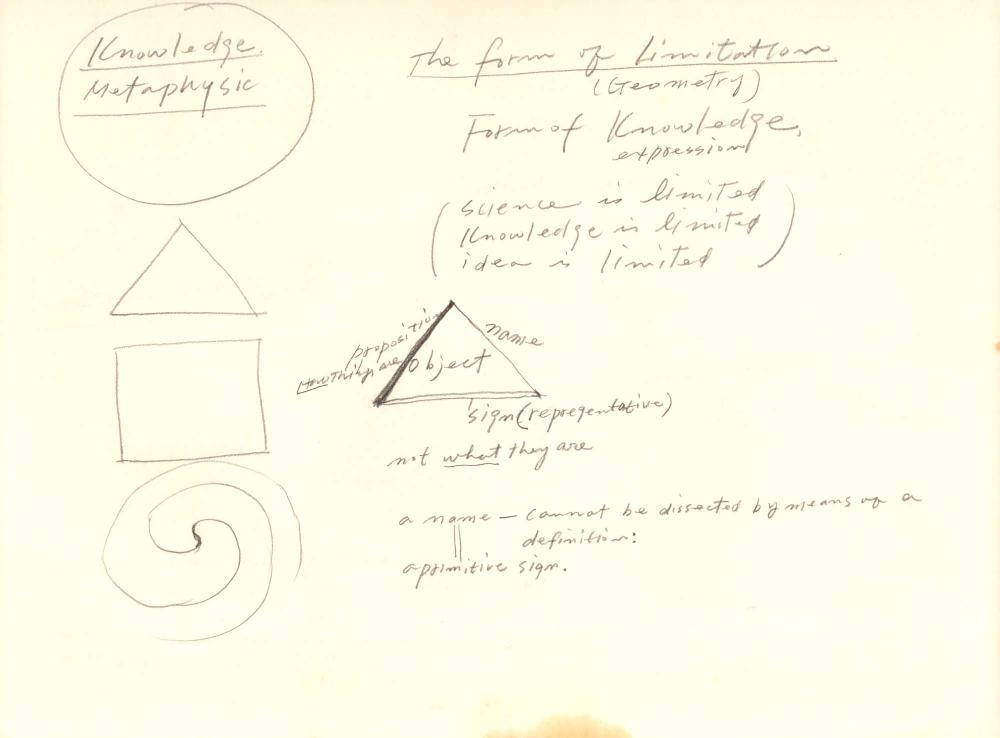 Knowledge.
Metaphysic
The form of Limitation
(Geometry)
Form of Knowledge,
expression
(science is limited
Knowledge is limited
idea is limited)
proposition
How things are
Object
name
sign (representative)
not what they are
a name — cannot be dissected by means of a
definition:
a primitive sign.